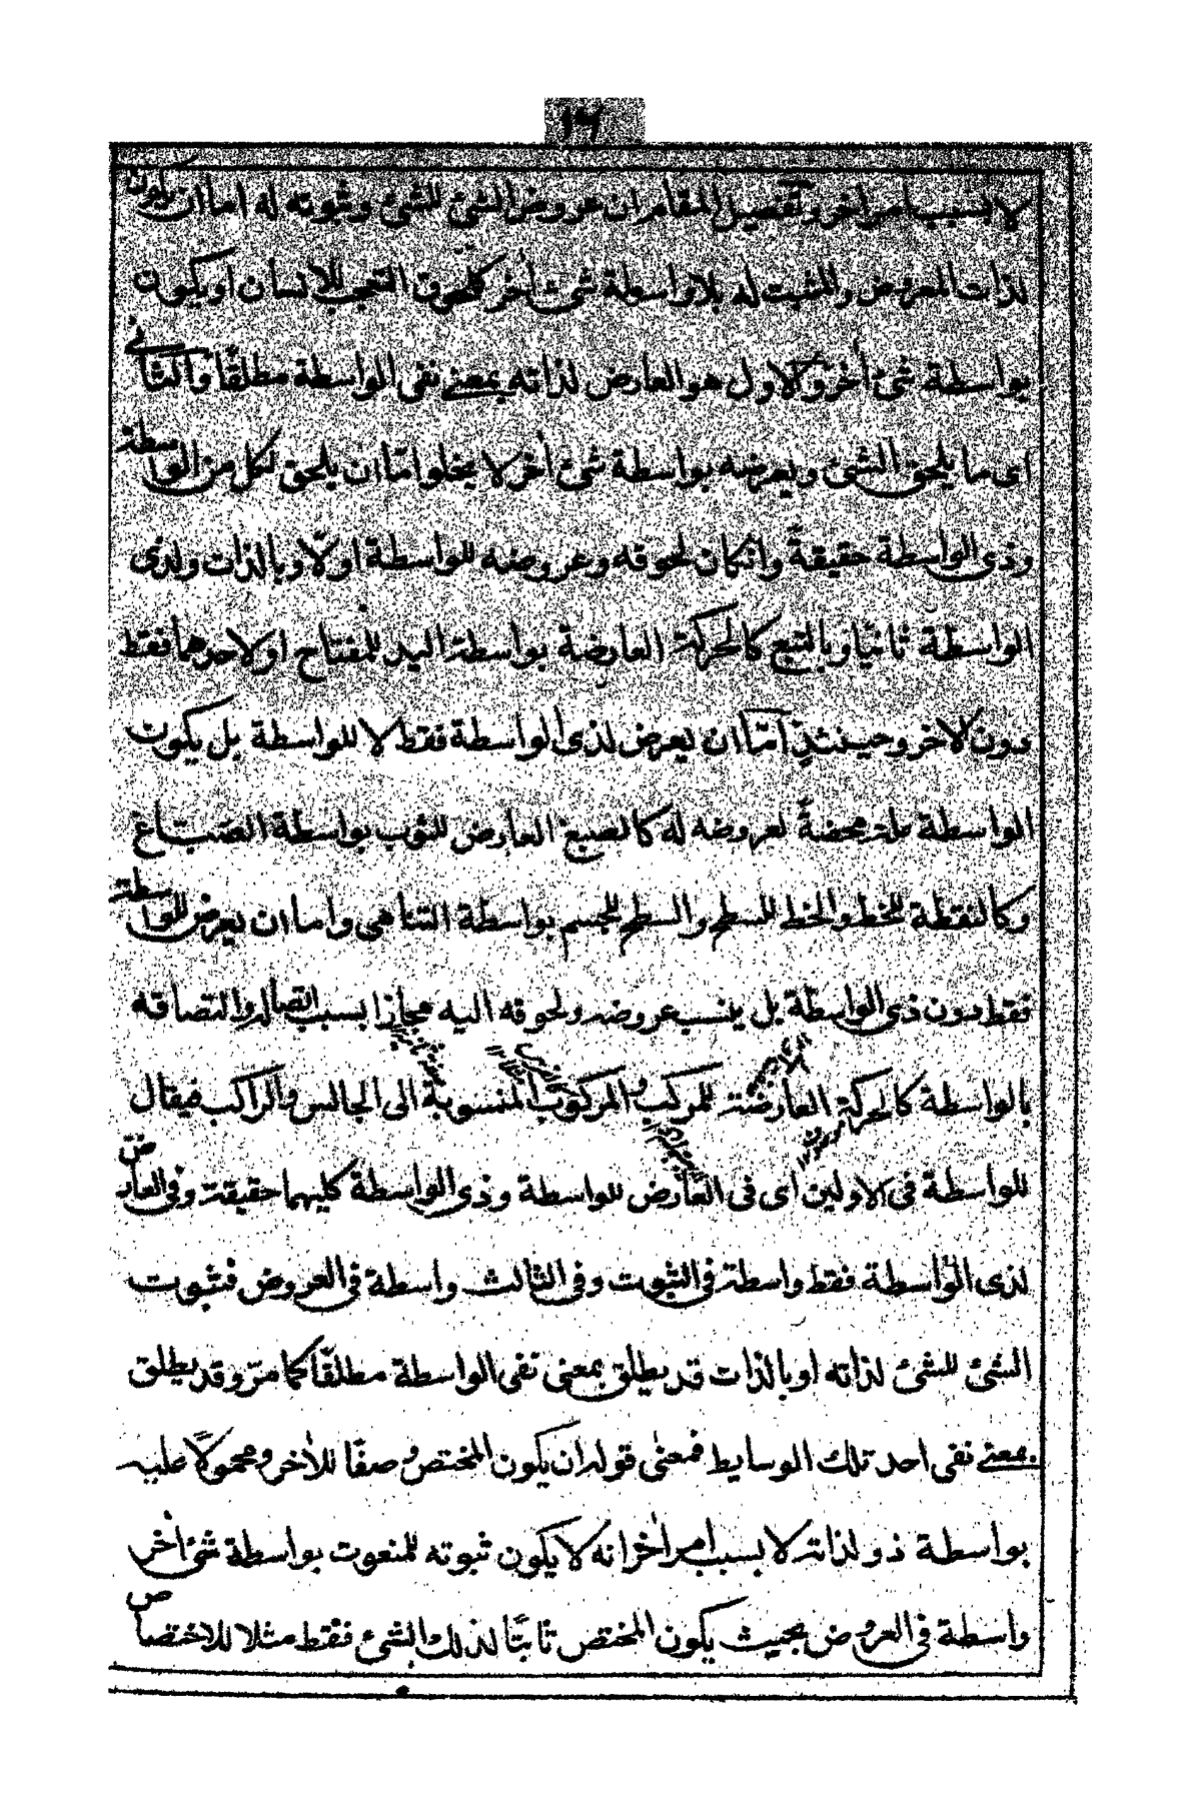 ١٦
لا بسبب امر اخر وتفصيل المقام ان عروض الشئ للشئ وثبوته له اما ان يكون
لذات المعروض والمثبت له بلا واسطة شئ اخر كلحوق التعجب للانسان او يكون
بواسطة شئ اخر والاول هو العارض لذاته بمعنى نفى الواسطة مطلقًا والثانى
اى ما يلحق الشئ ويعرضه بواسطة شئ اخر لا يخلوا امّا ان يلحق لكل من الواسطة
وذى الواسطة حقيقةً وانكان لحوقه وعروضه للواسطة اولًا وبالذات ولذى
الواسطة ثانيًا وبالتبع كالحركة العارضة بواسطة اليد للمفتاح او لاحدهما فقط
دون الاخر وحينئذٍ امّا ان يعرض لذى الواسطة فقط لا للواسطة بل يكون
الواسطة علة محضةً لعروضه له كالصبغ العارض للثوب بواسطة الصبّاغ
وكالنقطة للخط والخط للسطح والسطح للجسم بواسطة التناهى واما ان يعرض للواسطة
فقط دون ذى الواسطة بل ينسب عروضه ولحوقه اليه مجازا بسبب اتصاله والتصاقه
بالواسطة كالحركة العارضة للمركب المركوب المنسوبة الى الجالس والراكب فيقال
للواسطة فى الاولين اى فى العارض للواسطة وذى الواسطة كليهما حقيقة وفى العارض
لذى الواسطة فقط واسطة فى الثبوت وفى الثالث واسطة فى العروض فثبوت
الشئ للشئ لذاته او بالذات قد يطلق بمعنى نفى الواسطة مطلقًا كما مرّ وقد يطلق
بمعنى نفى احد تلك الوسايط فمعنى قوله ان يكون المختص وصفًا للاخر ومحمولًا عليه
بواسطة ذو لذاته لا بسبب امر اخر انه لا يكون ثبوته للمنعوت بواسطة شئ اخر
واسطة فى العروض بحيث يكون المختص ثابتًا لذلك الشئ فقط مثلا للاختصاص